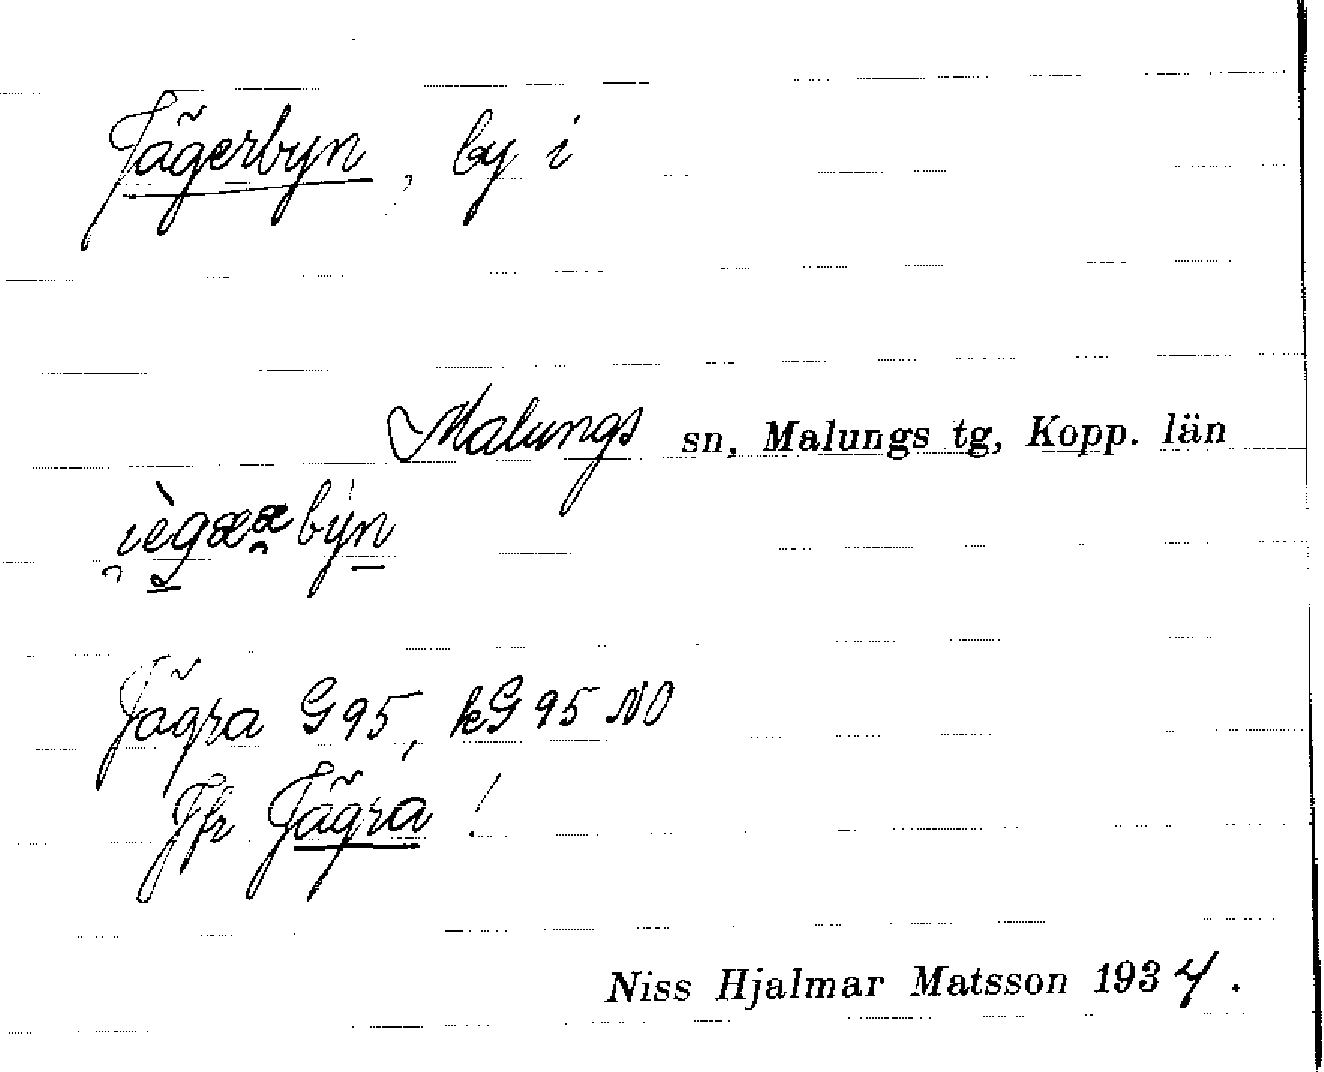 Jägerbyn, by i
Malungs sn, Malungs tg, Kopp. län
Jägra G 95, kG 95 NO
Jfr Jägra!
Niss Hjalmar Matsson 1934.